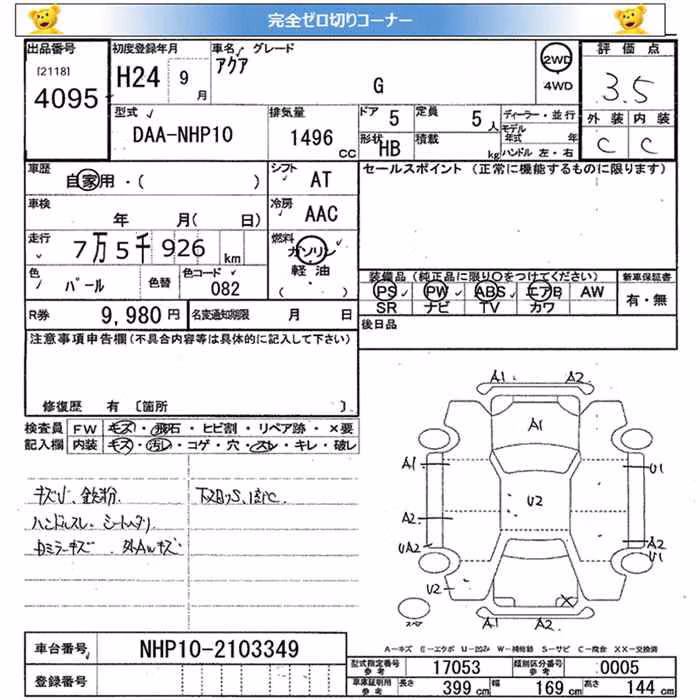 完全ゼロ切りコーナー
出品番号 初度登録年月 車名 グレード 2WD 評価点
[2118] アクア
4095 H24 9月 G 4WD 3.5
型式 排気量 ドア 5 定員 5人 ディーラー・並行 外装 内装
DAA-NHP10 1496 CC 形状 HB 積載 kg モデル年式 年 C C
ハンドル 左・右
車歴 シフト セールスポイント(正常に機能するものに限ります)
自家用・( ) AT
車検 年 月( 日) 冷房 AAC
走行 7万5千926 km 燃料 ガソリン
軽・油
( )
色 パール 色替 色コード 082
装備品(純正品に限り○をつけてください) 新車保証書
PS PW ABS エアB AW 有・無
SR ナビ TV カワ
R券 9,980円 名変通知期限 月 日 後日品
注意事項申告欄(不具合内容等は具体的に記入して下さい)
修復歴 有 〔箇所 〕
検査員 FW キズ・飛石・ヒビ割・リペア跡・×要
記入欄 内装 キズ・汚レ・コゲ・穴・スレ・キレ・破レ
A1 A2
A1
A1 U1
U2
A2
UA2 A2
U1
U2
A1
A2
キズU、鉄粉
ハンドルスレ、シートヘタリ
カミラーキズ、外Awキズ
スペア
A−キズ E−エクボ U−凹凸 W−補修跡 S−サビ C−腐食 XX−交換済
車台番号 NHP10-2103349
登録番号
型式指定番号 参考 17053 類別区分番号 参考 0005
車庫証明用 参考 長さ 399 cm 幅 169 cm 高さ 144 cm